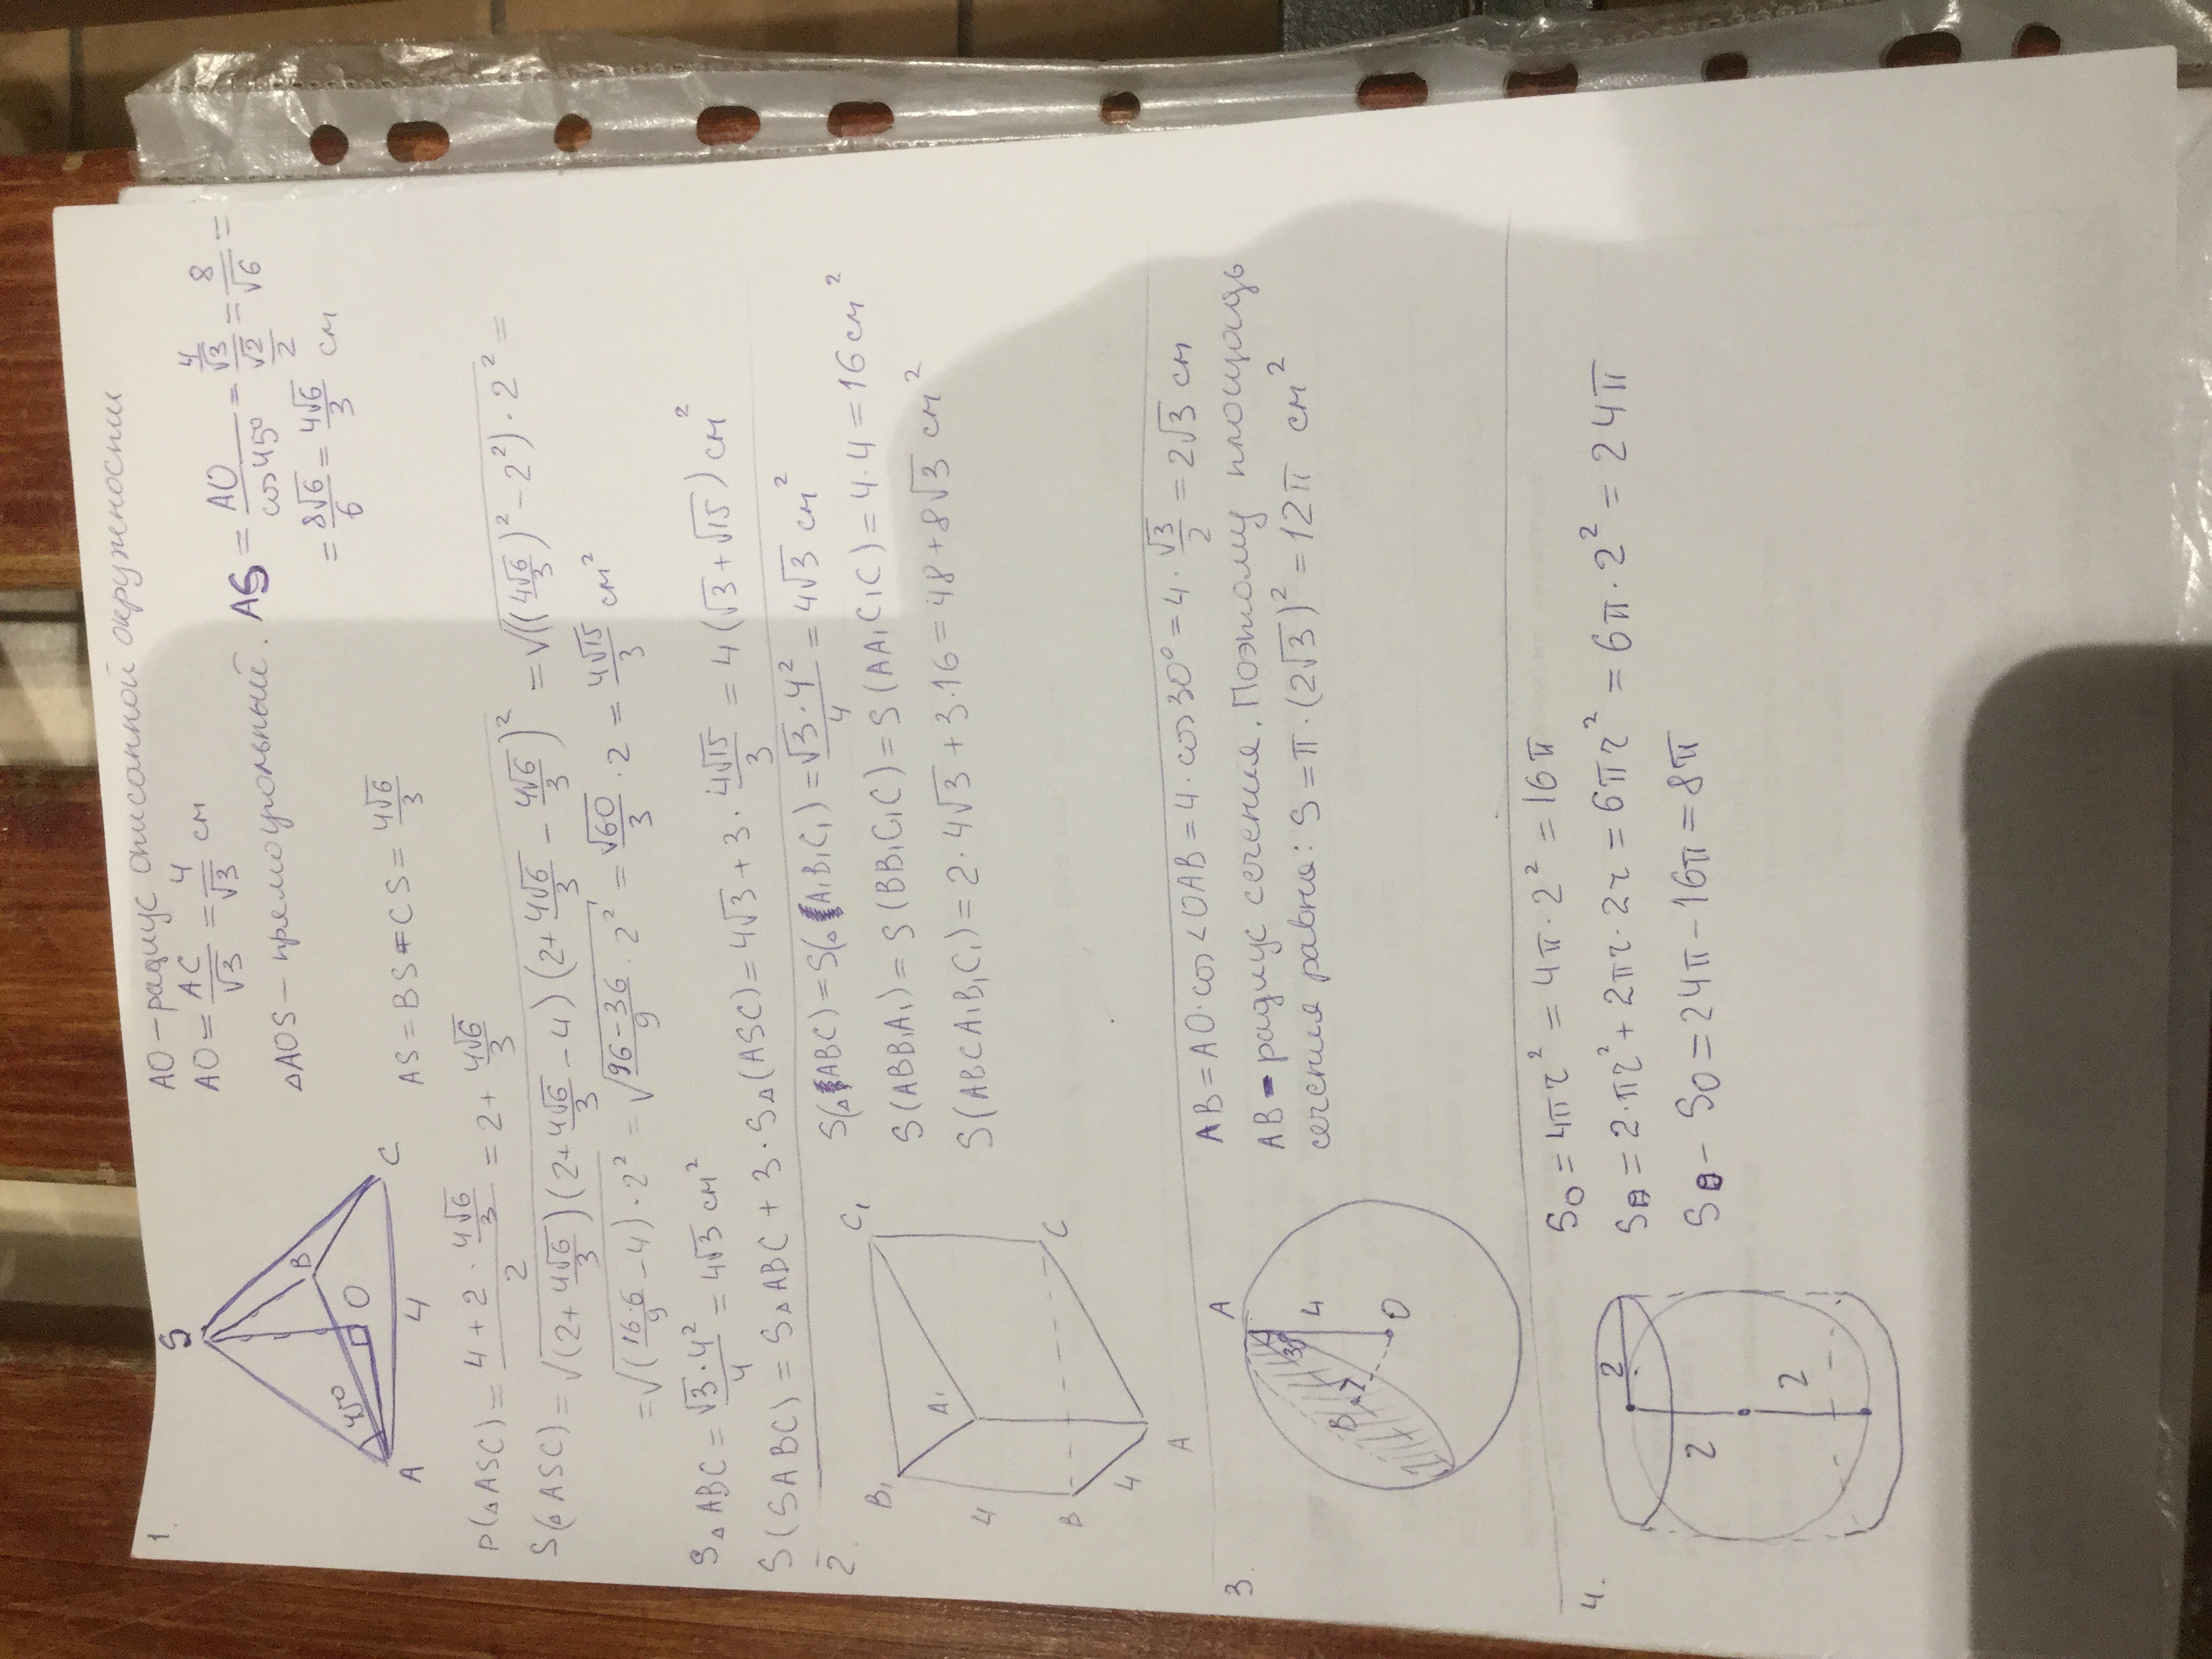 1.
AO – радиус описанной окружности
AO = AC/√3 = 4/√3 см
△AOS – прямоугольный. AS = AO/cos 45° = (4/√3)/(√2/2) = 8/√6 =
= 8√6/6 = 4√6/3 см
S
45°
B
O
A
4
C
AS = BS = CS = 4√6/3
P(△ASC) = (4 + 2 · 4√6/3)/2 = 2 + 4√6/3
S(△ASC) = √((2 + 4√6/3)(2 + 4√6/3 − 4)(2 + 4√6/3 − 4√6/3)²) = √((4√6/3)² − 2²) · 2² =
= √((16·6/9 − 4) · 2²) = √((96 − 36)/9 · 2²) = √60/3 · 2 = 4√15/3 см²
S△ABC = √3 · 4²/4 = 4√3 см²
S(SABC) = S△ABC + 3 · S△(ASC) = 4√3 + 3 · 4√15/3 = 4(√3 + √15) см²
2.
B₁
A₁
C₁
4
B
4
A
C
S(△ABC) = S(△A₁B₁C₁) = √3 · 4²/4 = 4√3 см²
S(ABB₁A₁) = S(BB₁C₁C) = S(AA₁C₁C) = 4 · 4 = 16 см²
S(ABCA₁B₁C₁) = 2 · 4√3 + 3 · 16 = 48 + 8√3 см²
3.
A
30°
4
B
O
AB = AO · cos<OAB = 4 · cos 30° = 4 · √3/2 = 2√3 см
AB – радиус сечения. Поэтому площадь
сечения равна: S = π · (2√3)² = 12π см²
4.
2
2
2
S○ = 4πr² = 4π · 2² = 16π
S⌸ = 2 · πr² + 2πr · 2r = 6πr² = 6π · 2² = 24π
S⌸ − S○ = 24π − 16π = 8π